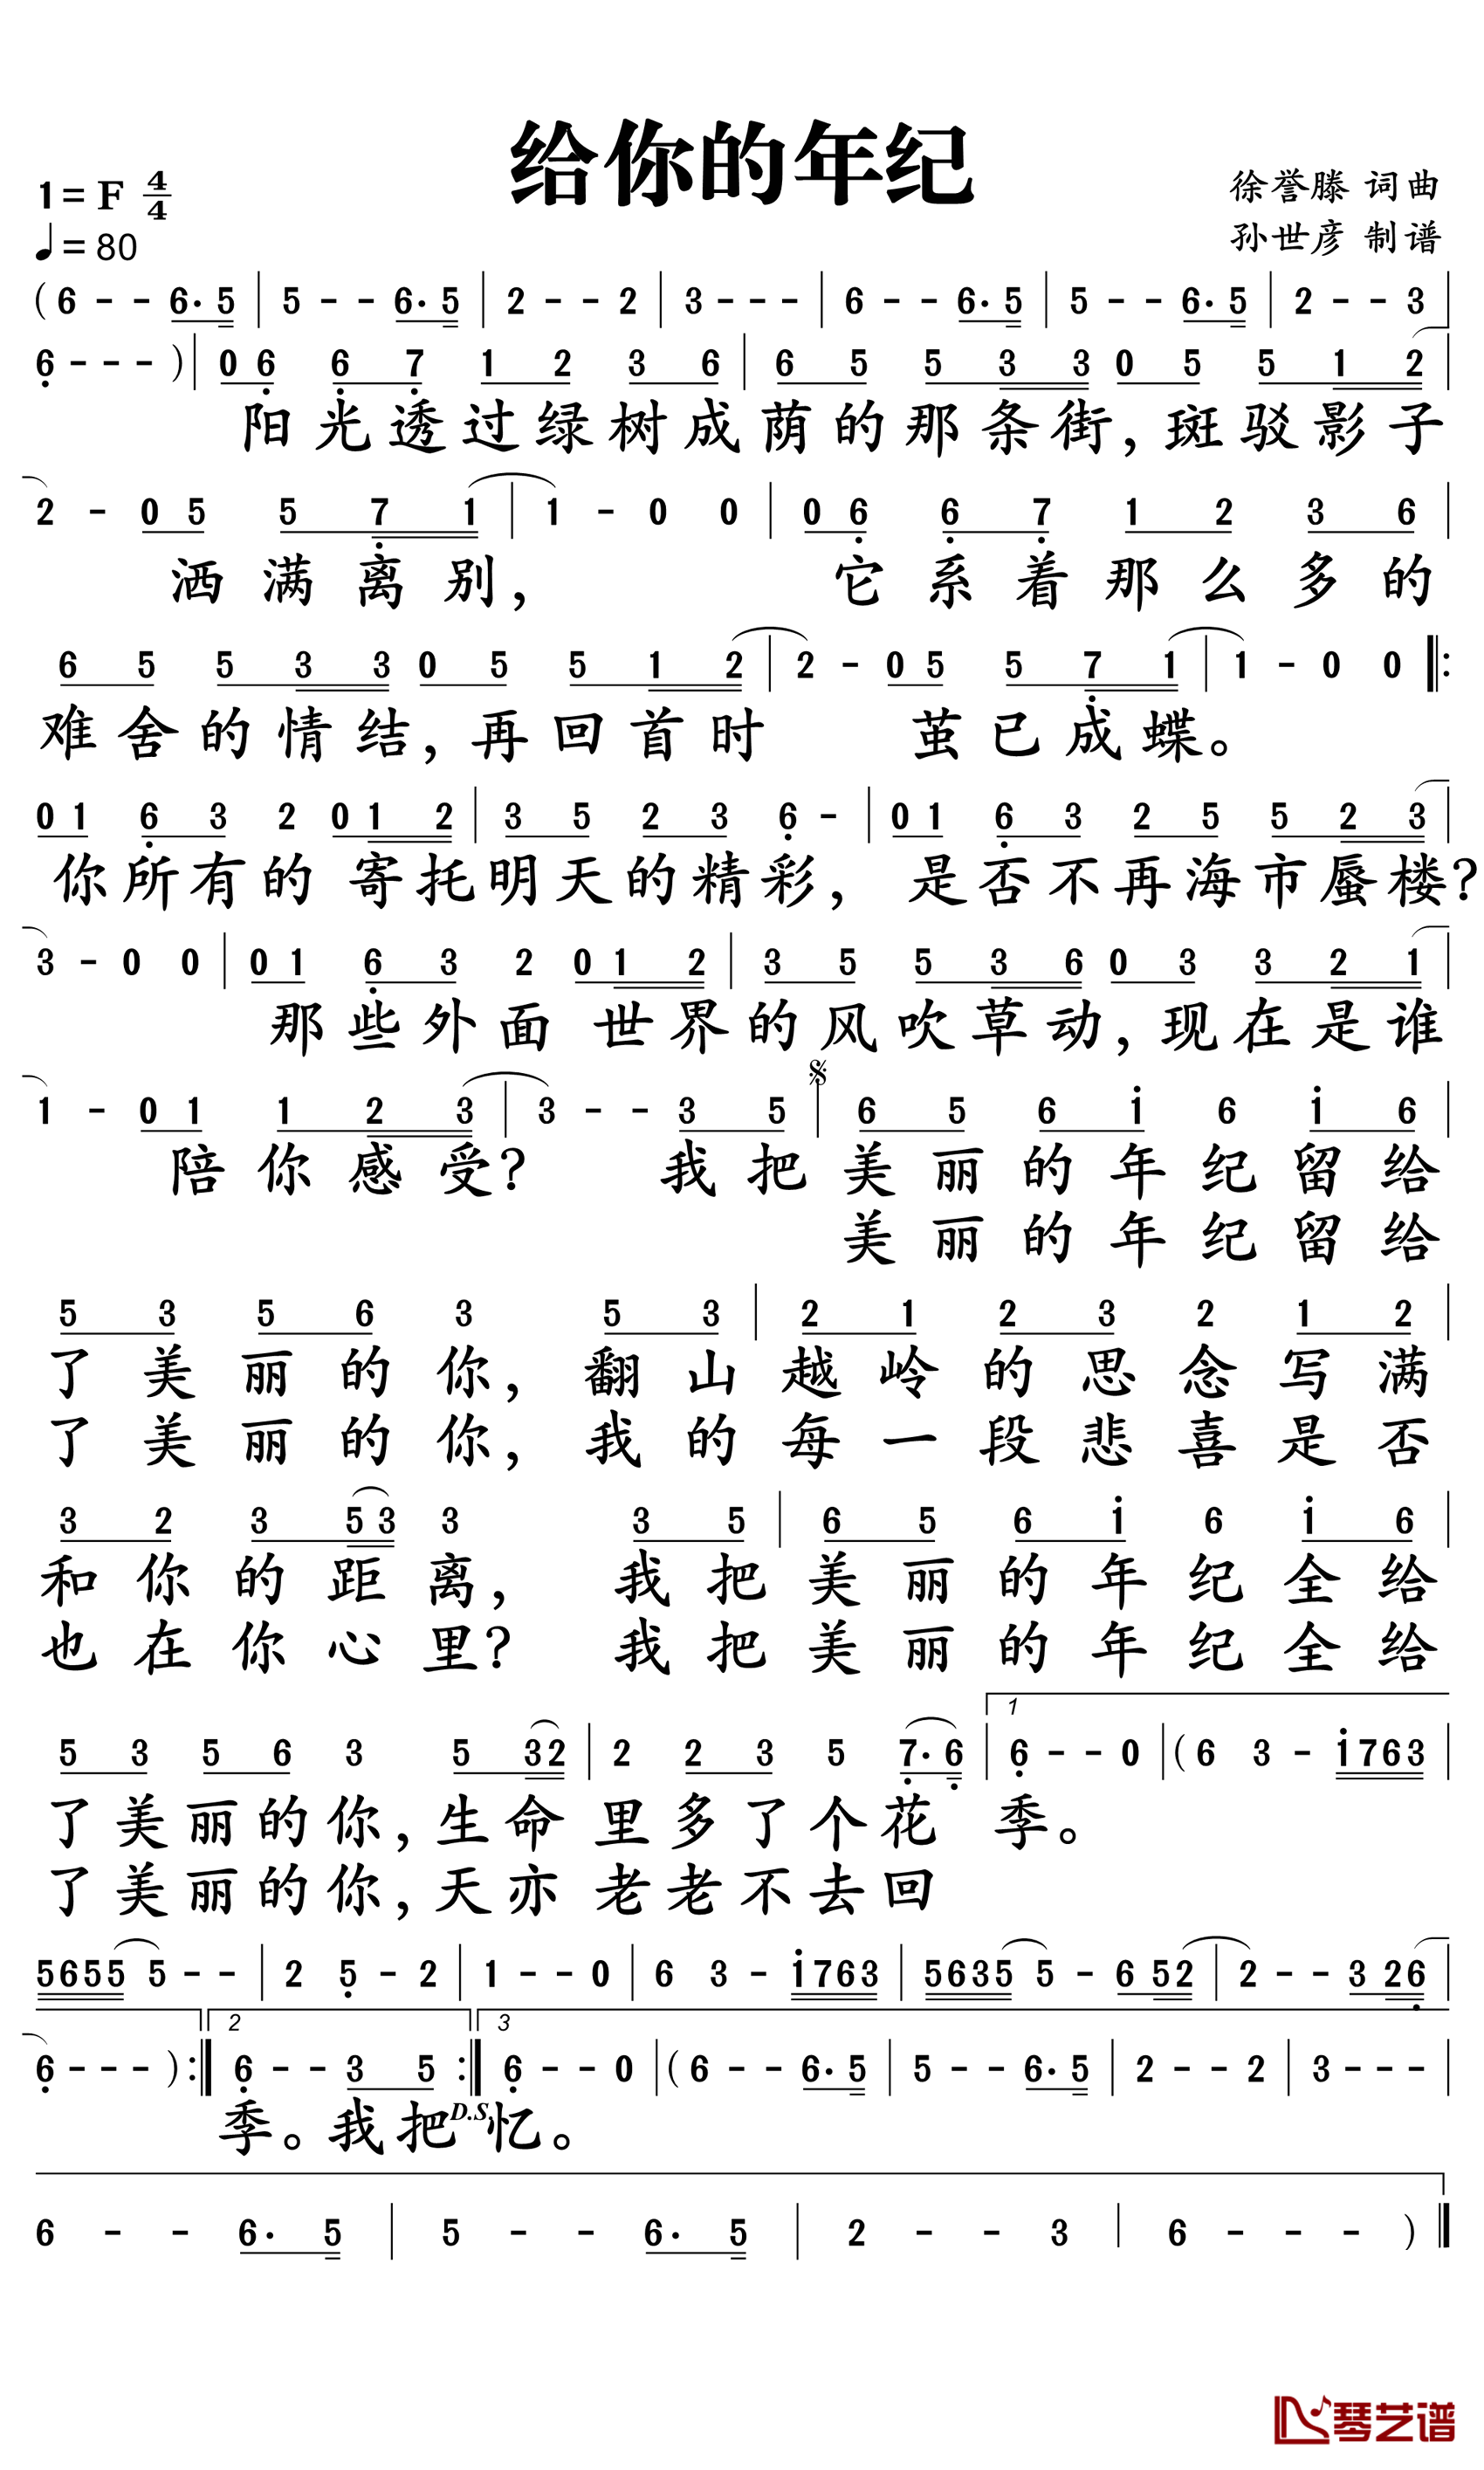 给你的年纪
1= F 4/4
♩= 80
徐誉滕 词曲
孙世彦 制谱
( 6 - - 6. 5 | 5 - - 6. 5 | 2 - - 2 | 3 - - - | 6 - - 6. 5 | 5 - - 6. 5 | 2 - - 3 |
6 - - - ) | 0 6 6 7 1 2 3 6 | 6 5 5 3 3 0 5 5 1 2 |
阳光透过绿树成荫的那条街，斑驳影子
2 - 0 5 5 7 1 | 1 - 0 0 | 0 6 6 7 1 2 3 6 |
洒满离别， 它系着那么多的
6 5 5 3 3 0 5 5 1 2 | 2 - 0 5 5 7 1 | 1 - 0 0 ‖:
难舍的情结，再回首时 茧已成蝶。
0 1 6 3 2 0 1 2 | 3 5 2 3 6 - | 0 1 6 3 2 5 5 2 3 |
你所有的 寄托明天的精彩， 是否不再海市蜃楼?
3 - 0 0 | 0 1 6 3 2 0 1 2 | 3 5 5 3 6 0 3 3 2 1 |
那些外面 世界的风吹草动，现在是谁
1 - 0 1 1 2 3 | 3 - - 3 5 | 6 5 6 1 6 1 6 |
陪你感受? 我把美丽的年纪留给
美丽的年纪留给
5 3 5 6 3 5 3 | 2 1 2 3 2 1 2
了美丽的你，翻山越岭的思念写满
了美丽的你，我的每一段悲喜是否
3 2 3 5 3 3 3 5 | 6 5 6 1 6 1 6 |
和你的距离， 我把美丽的年纪全给
也在你心里? 我把美丽的年纪全给
5 3 5 6 3 5 3 2 | 2 2 3 5 7. 6 | 1 6 - - 0 | ( 6 3 - 1 7 6 3 |
了美丽的你，生命里多了个花 季。
了美丽的你，天亦老老不去回
5 6 5 5 5 - - | 2 5 - 2 | 1 - - 0 | 6 3 - 1 7 6 3 | 5 6 3 5 5 - 6 5 2 | 2 - - 3 2 6 |
6 - - - ) :‖ 2 6 - - 3 5 :‖ 3 6 - - 0 | ( 6 - - 6. 5 | 5 - - 6. 5 | 2 - - 2 | 3 - - - |
季。我把 D.S. 忆。
6 - - 6. 5 | 5 - - 6. 5 | 2 - - 3 | 6 - - - ) ‖
琴艺谱